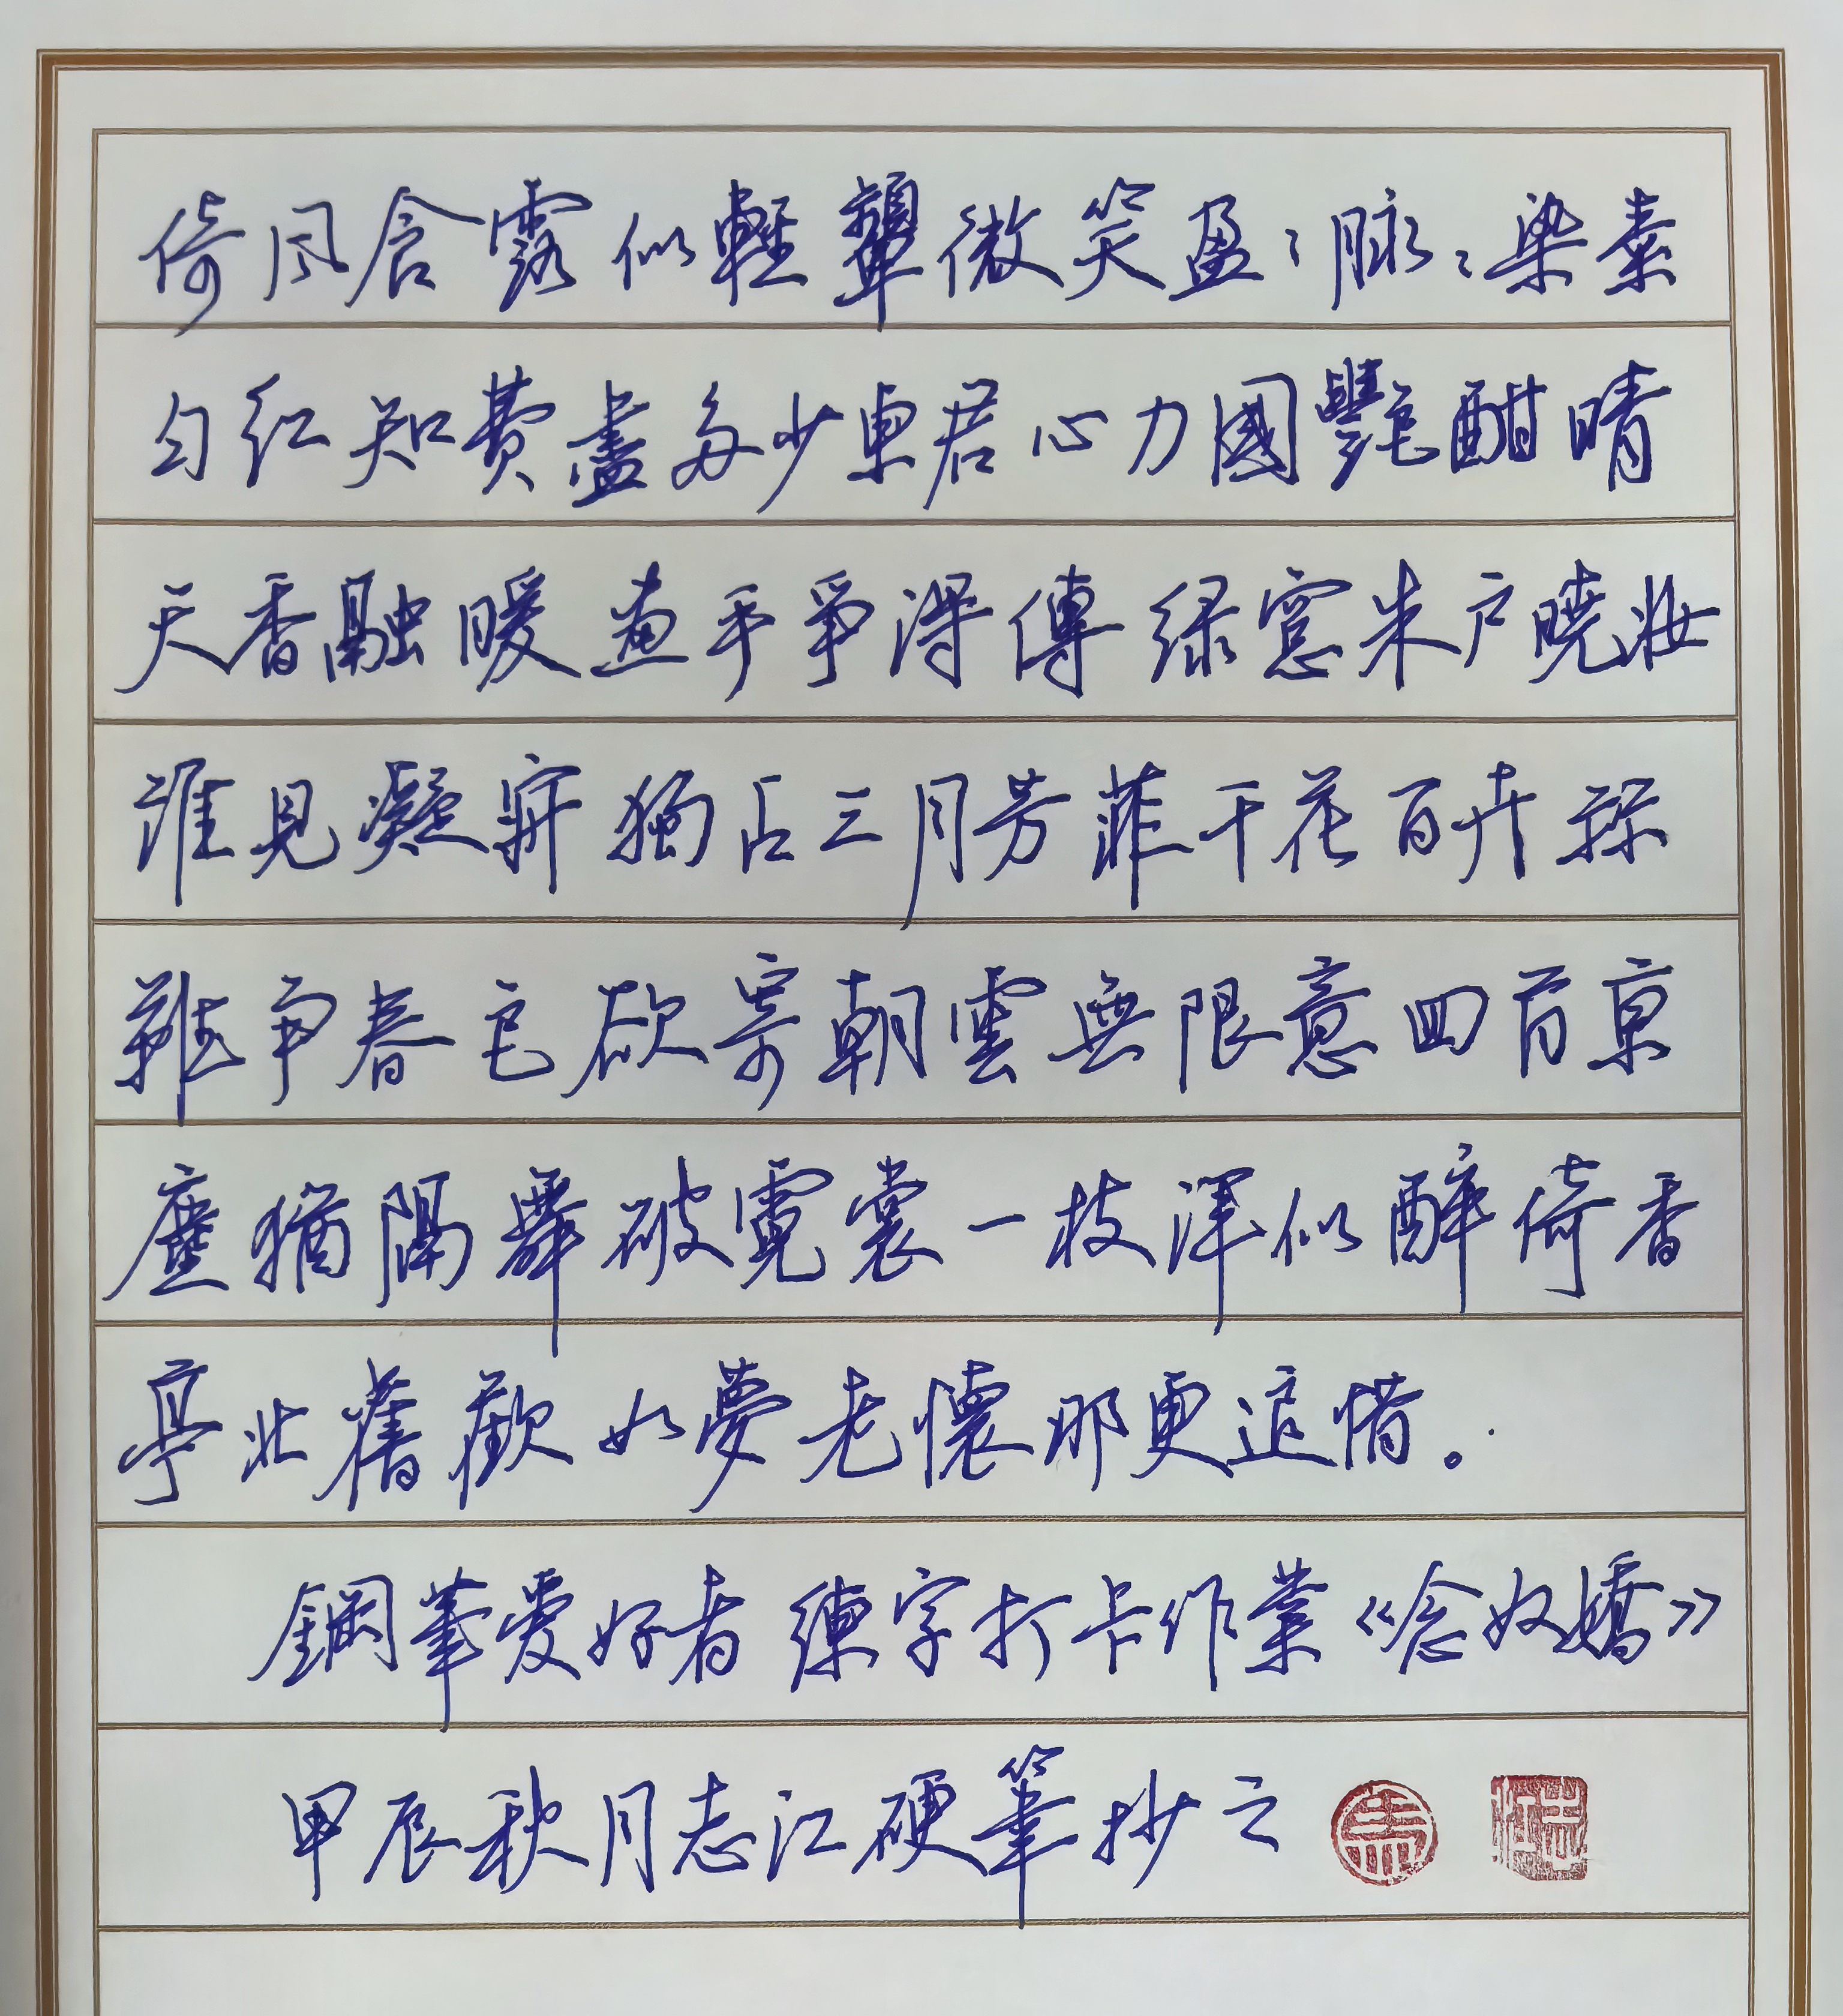 倚风含露似輕顰微笑盈〻脉〻染素
匀红知費盡多少東君心力國艷酣晴
天香融暖畫手爭得傳绿窓朱户曉妝
誰見凝竚獨占三月芳菲千花百卉算
難争春色欲寄朝雲無限意回首京
塵猶隔舞破霓裳一枝渾似醉倚香
亭北舊歡如夢老懷那更追惜。
鋼筆爱好者練字打卡作業《念奴嬌》
甲辰秋月志江硬筆抄之